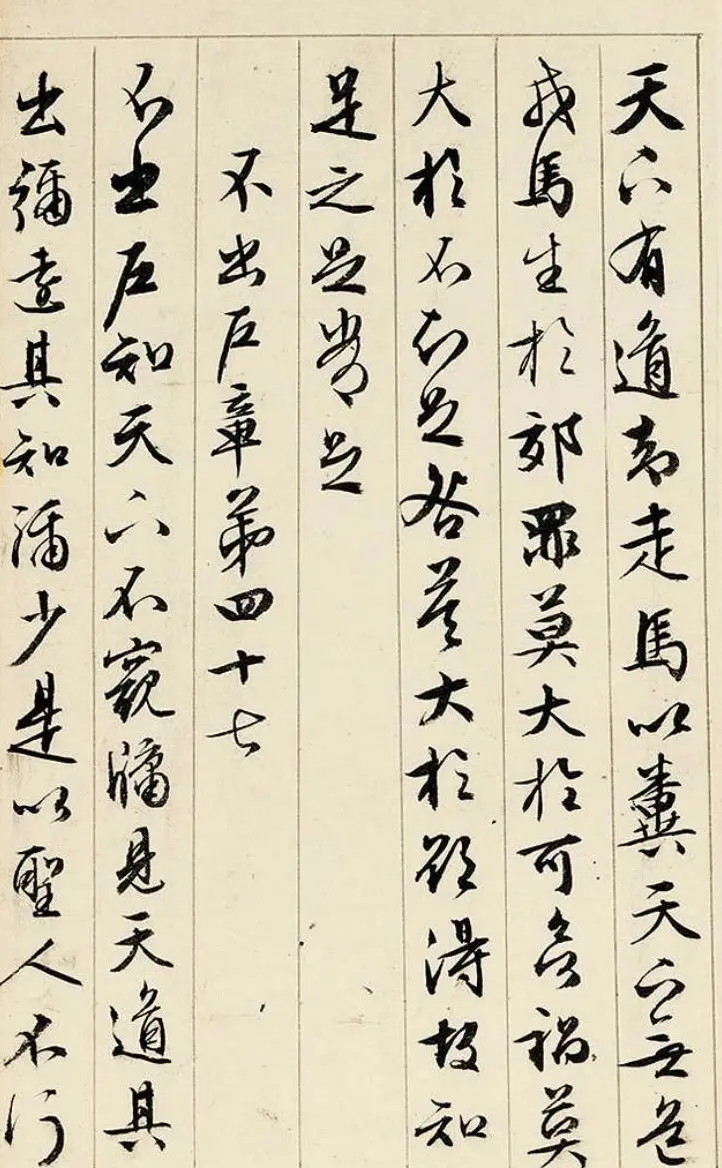 天下有道却走馬以糞天下無道
戎馬生於郊罪莫大於可欲禍莫
大於不知足咎莫大於欲得故知
足之足常足
不出戶章第四十七
不出戶知天下不窺牖見天道其
出彌遠其知彌少是以聖人不行